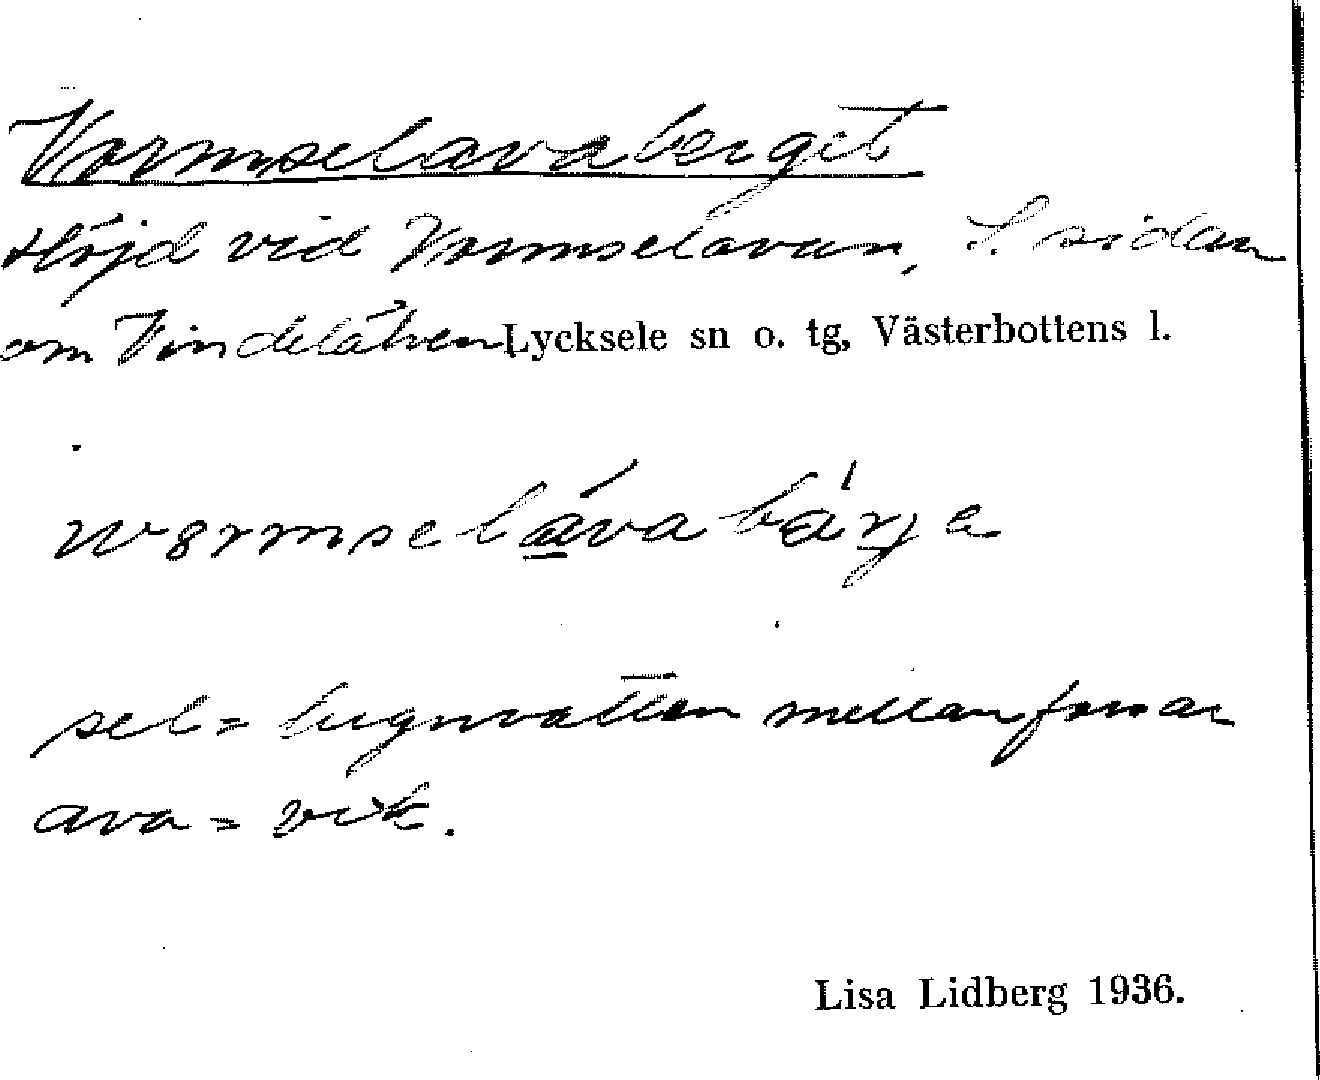 Vormselavaberget
Höjd vid Vormselavan, S. sidan
om Vindelälven Lycksele sn o. tg, Västerbottens l.
sel = lugnvatten mellan forsar
ava = vik.
Lisa Lidberg 1936.